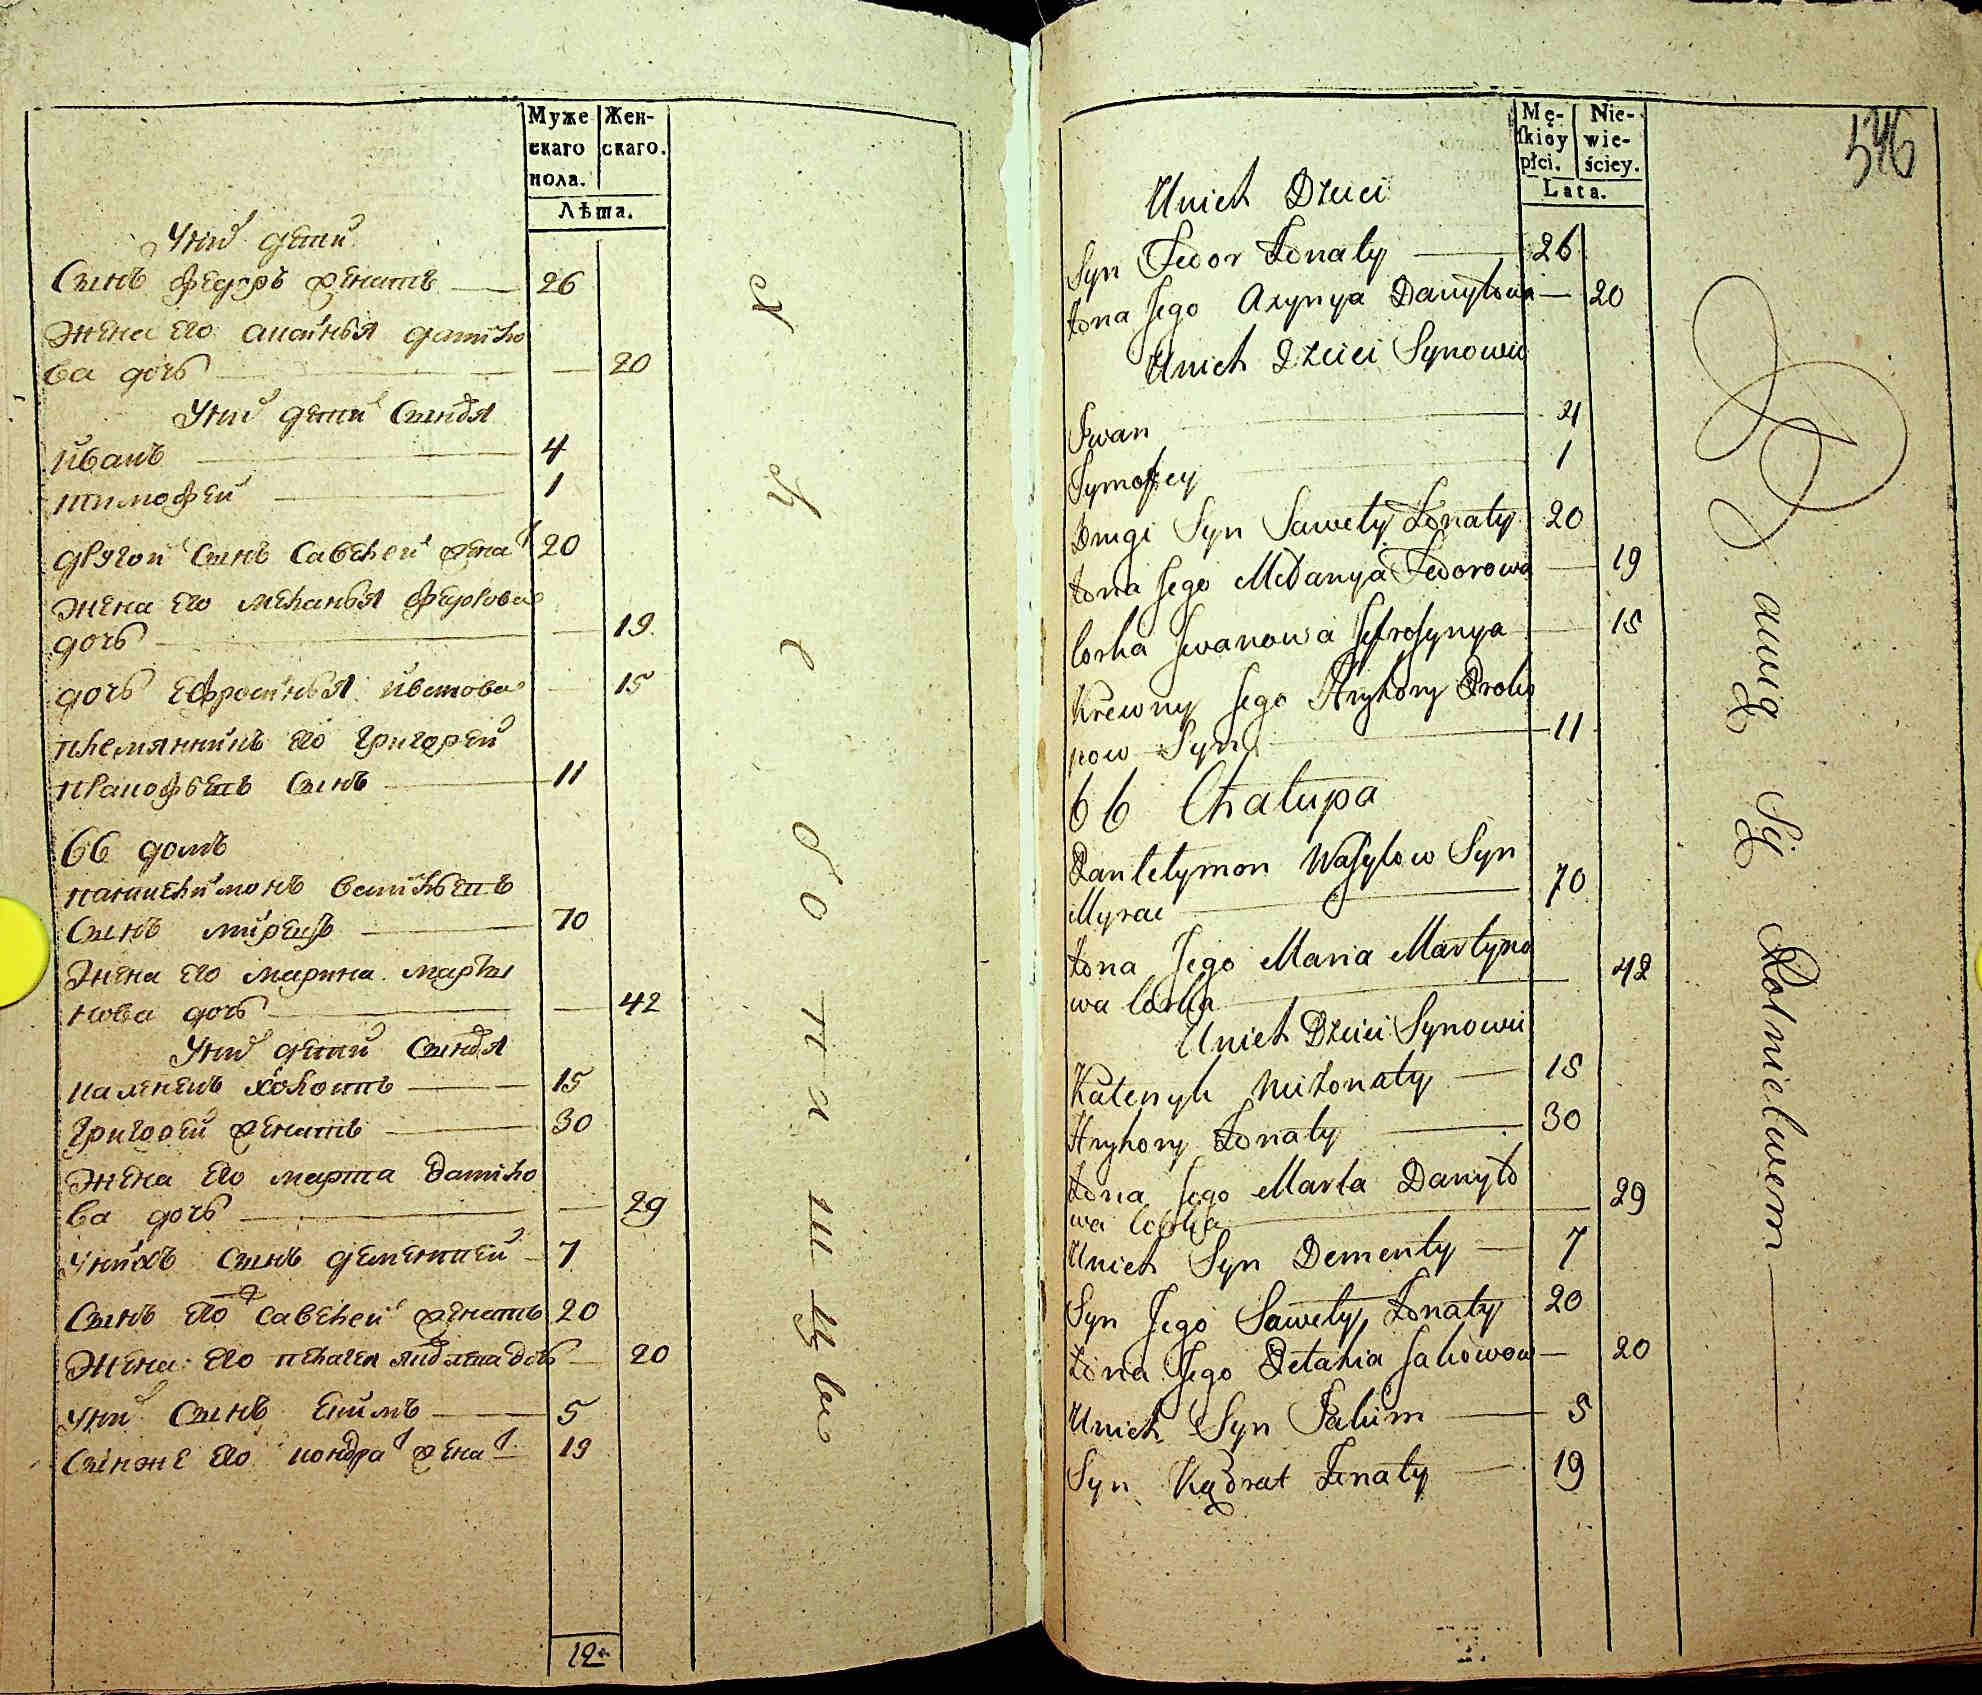 Муже
скаго
пола.
Жен-
скаго.
Лѣта.
Унихъ дети
Сынъ федоръ женатъ 26
жена его данило
ва дочь 20
Унихъ дети Сыновя
иванъ 4
тимофей 1
другой Сынъ Савелей жена 20
жена его меланья федорова
дочь 19
дочь ефросинья иванова 15
племянникъ его григорей
Сынъ 11
66 домъ
Сынъ 70
жена его марина марты
нова дочь 42
Унихъ дети Сыновя
холостъ 15
григорей женатъ 30
жена его марта данило
ва дочь 29
унихъ Сынъ дементей 7
Сынъ его Савелей женатъ 20
жена его пелагея дочь 20
уних Сынъ 5
его кондра жена 19
12
хлебопашцы
546
Mę-
skiey
płci.
Nie-
wie-
ściey.
Lata.
Unich Dzieci
Syn Fedor Żonaty 26
żona Jego Danyłowa 20
Unich Dzieci Synowie
Iwan 4
Tymofiey 1
Drugi Syn Sawely Żonaty 20
żona Jego Mełanya Fedorowa 19
Corka Iwanowa Jefrosynya 15
Krewny Jego Hryhory Proko
pow Syn 11
66 Chałupa
Pantelymon Wasylow Syn
70
żona Jego Maria Martyno
wa Corka 42
Unich Dzieci Synowie
nieżonaty 15
Hryhory Żonaty 30
żona Jego Marta Danyło
wa Corka 29
Unich Syn Dementy 7
Syn Jego Sawely Żonaty 20
żona Jego Pelahia Jakowowa 20
Unich Syn Jakim 5
Syn Kądrat Żenaty 19
Bawią Się Rolnictwem